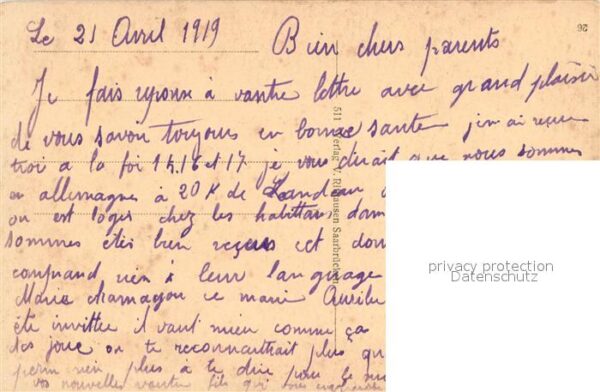 Le 21 Avril 1919
Bien chers parents
Je fais reponse à vautre lettre avec grand plaisir
de vous savoir toujours en bonne sante j'en ai reçue
troi a la foi 14.16 et 17 je vous dirait que nous sommes
en allemagne à 20 K de Landeau
on est loges chez les habittans
sommes étés bien reçus cet
comprand rien à leur language
Marie ce marie
été invittee il vaut mieu comme ça
des joue on te reconnaittrait plus
rien plus a te dire pour le
vos nouvelles vautre fils qui vous
511 Verlag V. Saarbrücken
26
privacy protection
Datenschutz